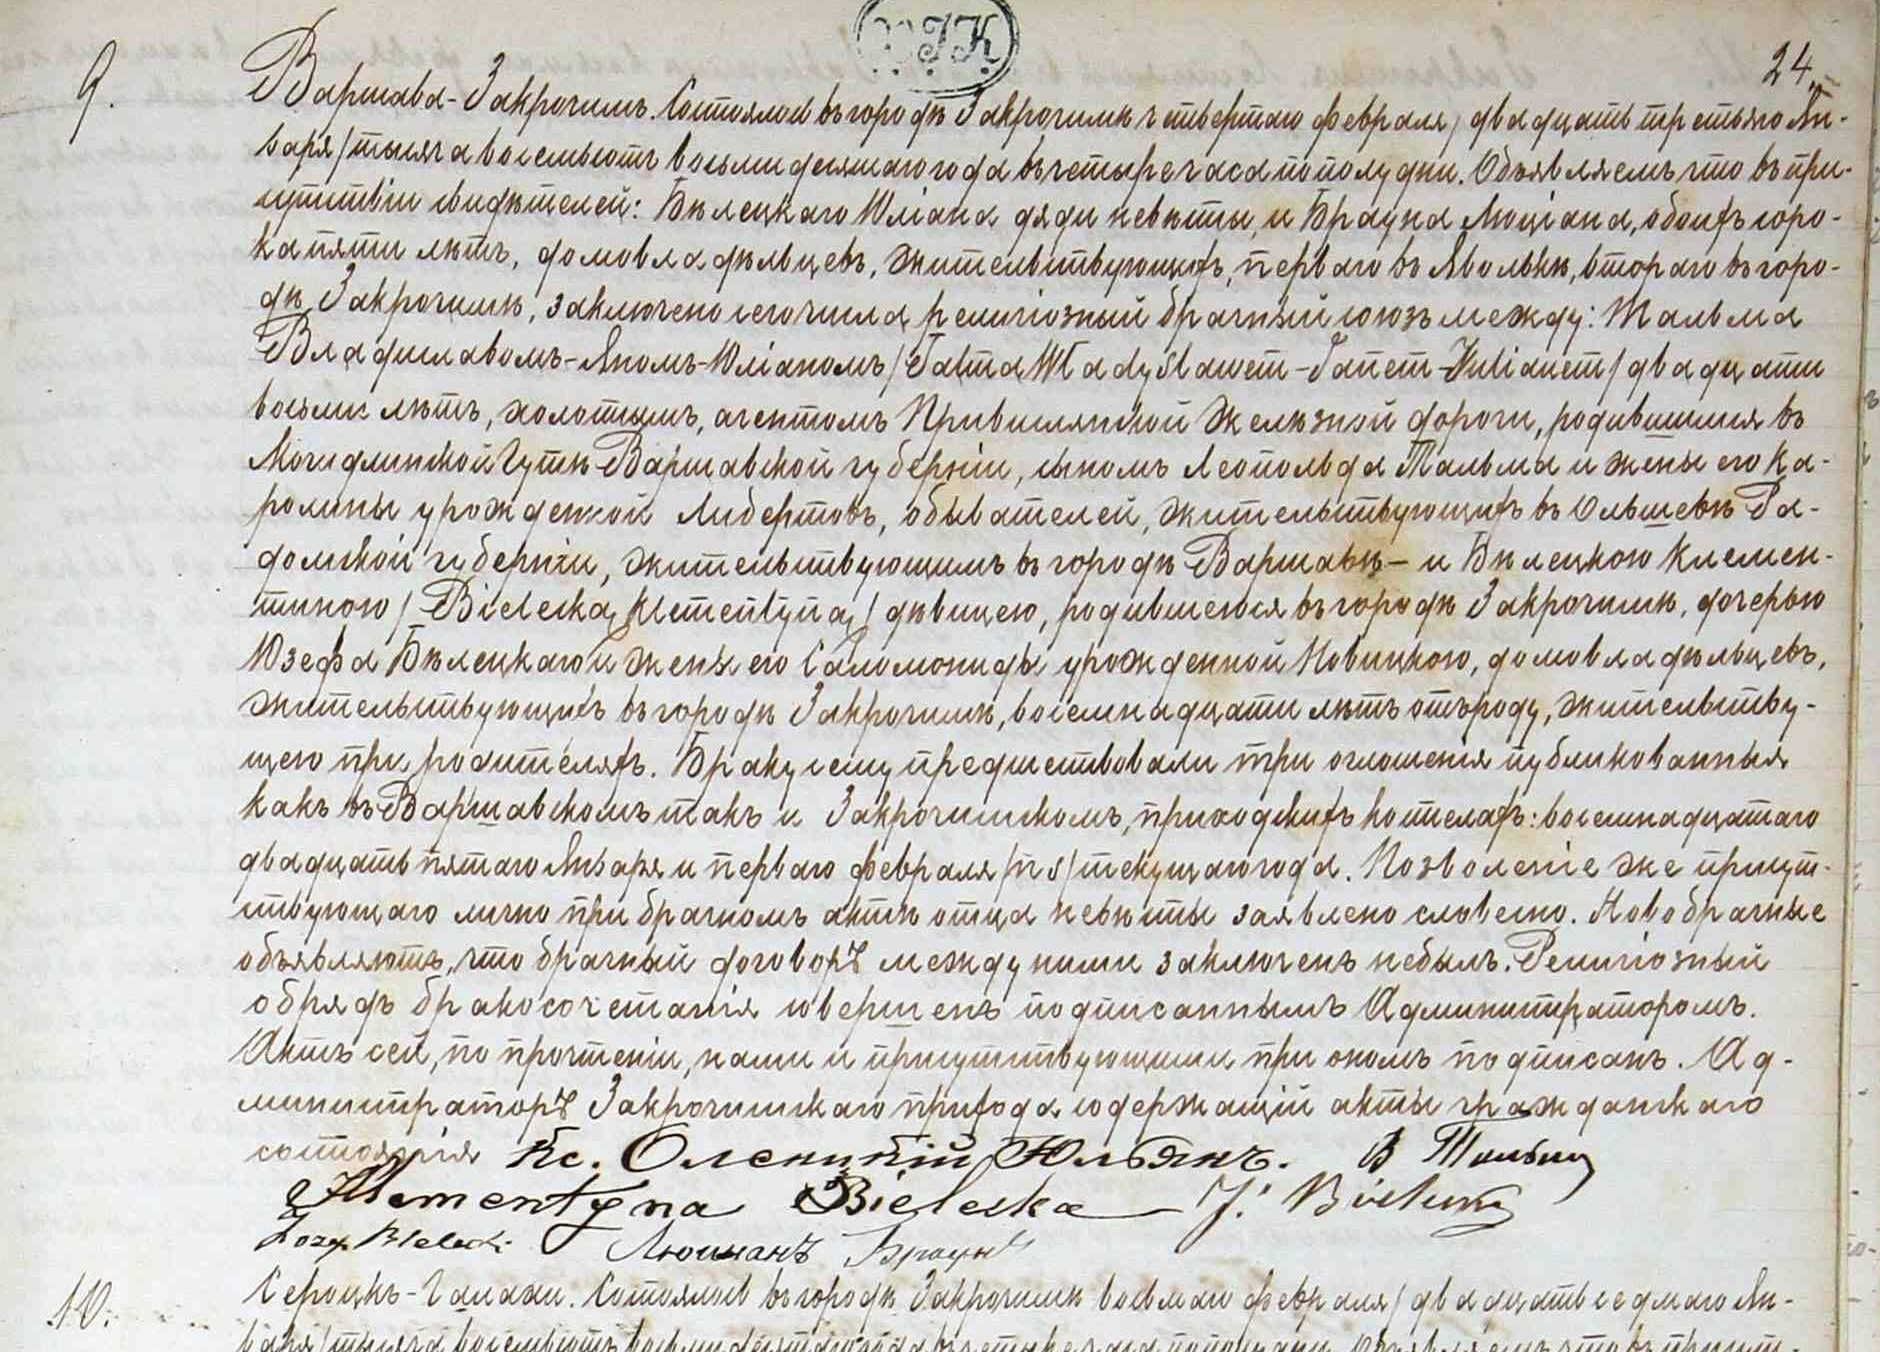 24.
9.
Варшава-Закрочимъ. Состоялось въ городѣ Закрочимѣ четвертаго февраля / двадцать третьяго Ян-
варя / тысяча восемьсотъ восьмидесятаго года въ четыре часа по полудни. Объявляемъ что въ при-
сутствіи свидѣтелей: Бѣлецкаго Юліана дяди невѣсты, и Брауна Люціана, обоихъ соро-
ка пяти лѣтъ, домовладѣльцевъ, жительствующихъ, перваго въ Явольѣ, втораго въ горо-
дѣ Закрочимѣ, заключено сего числа религіозный брачный союзъ между: Тальма
Владиславомъ-Яномъ-Юліаномъ / Talma Władysławem-Janem-Julianem / двадцати
восьми лѣтъ, холостымъ, агентомъ Привислянской Желѣзной дороги, родившимся въ
Гутѣ Варшавской губерніи, сыномъ Леопольда Тальмы и жены его Ка-
ролины урожденной Либертовъ, обывателей, жительствующихъ въ Ольшевѣ Ра-
домской губерніи, жительствующимъ въ городѣ Варшавѣ – и Бѣлецкою Клемен-
тиною / Bielecka Klementyna / дѣвицею, родившеюся въ городѣ Закрочимѣ, дочерью
Юзефа Бѣлецкаго и жены его Саломониды урожденной Новицкою, домовладѣльцевъ,
жительствующихъ въ городѣ Закрочимѣ, восемнадцати лѣтъ отъ роду, жительству-
щею при родителяхъ. Браку сему предшествовали три оглошенія публикованныя
какъ въ Варшавскомъ такъ и Закрочимскомъ, приходскихъ костелахъ: восемнадцатаго
двадцать пятаго Января и перваго февраля /н s/ текущаго года. Позволеніе же присут-
ствующаго лично при брачномъ актѣ отца невѣсты заявлено словесно. Новобрачные
объявляютъ, что брачный договоръ между ними заключенъ небылъ. Религіозный
обрядъ бракосочетанія совершенъ подписаннымъ Администраторомъ.
Актъ сей, по прочтеніи, нами и присутствующими при ономъ подписанъ. Ад-
министраторъ Закрочимскаго прихода содержащій акты гражданскаго
состоянія Кс. Олениукій Юльянъ. В Тальма
Klementyna Bielecka J. Bielecki
Józef Bielecki Люціанъ Браунъ
10.
Сероцкъ- Состоялось въ городѣ Закрочимѣ восьмаго февраля / двадцать седмаго Ян-
варя / тысяча восемьсотъ восьмидесятаго года въ четыре часа пополудни. Объявляемъ что въ присут-